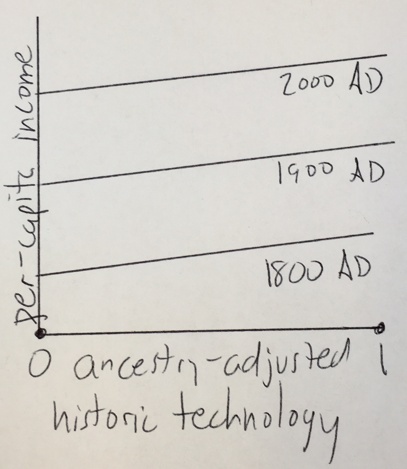 per-capita income
2000 AD
1900 AD
1800 AD
0 ancestry-adjusted 1
historic technology